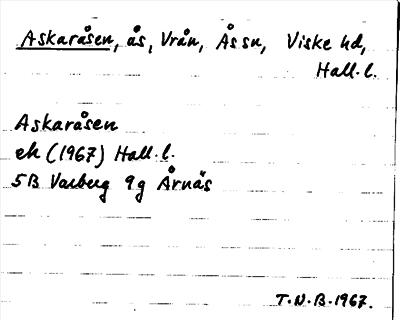 Askaråsen, ås, Vrån, Ås sn, Viske hd,
Hall. l.
Askaråsen
ek (1967) Hall. l.
5B Varberg 9g Årnäs
T.N.B. 1967.